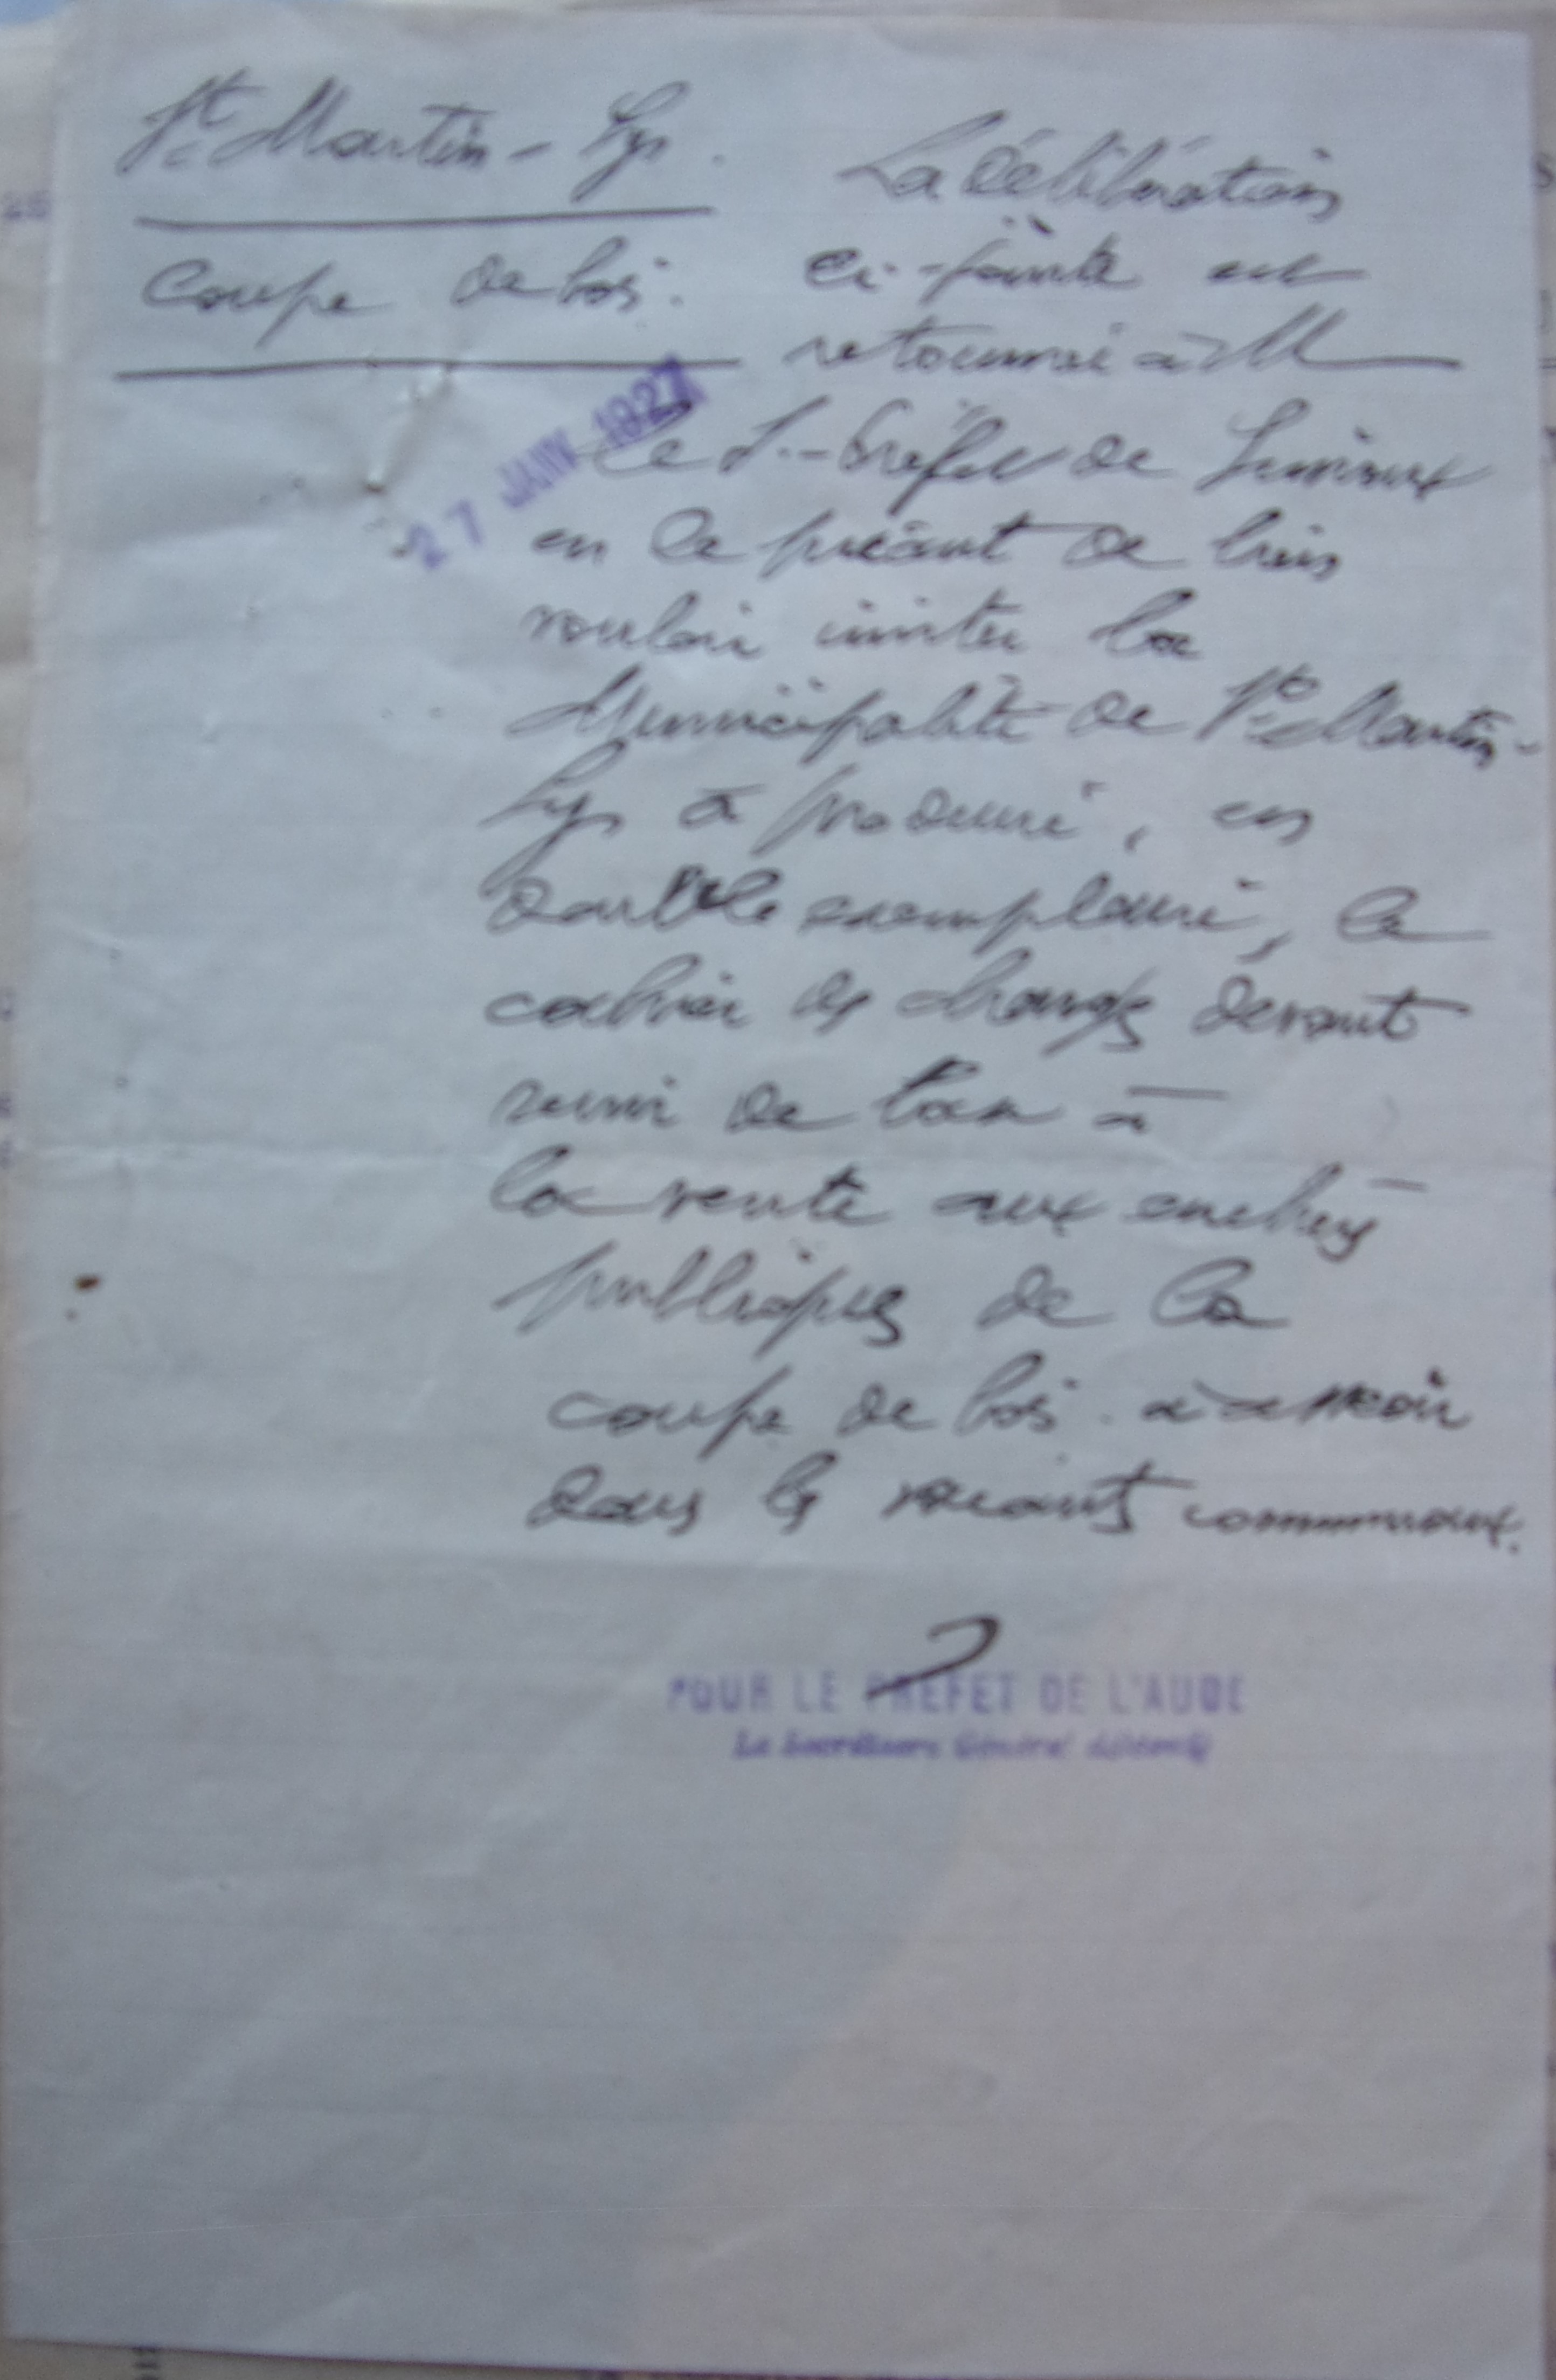 St Martin-Lys.
Coupe de bois.
La délibération
ci-jointe est
retournée à M
27 JANV 1927
le S.-Préfet de Limoux
en le priant de bien
vouloir inviter la
Municipalité de St Martin-
Lys à produire, en
double exemplaire, le
cahier des charges devant
servir de base à
la vente aux enchères
publiques de la
coupe de bois à asseoir
dans les vacants communaux.
POUR LE PREFET DE L'AUDE
Le Secrétaire Général délégué